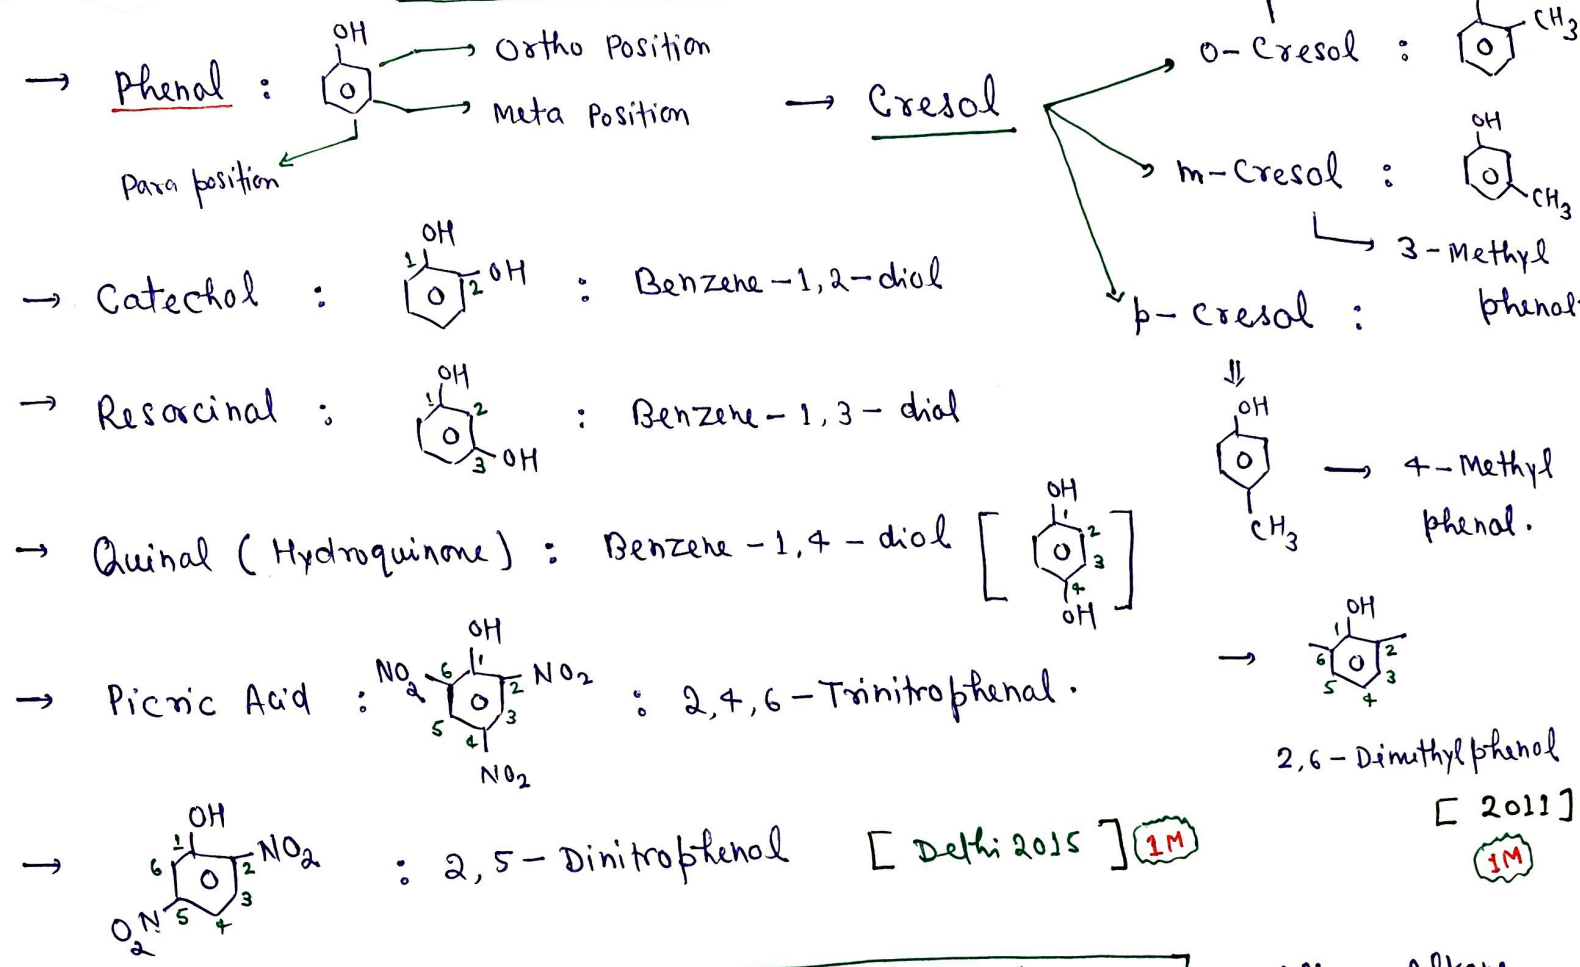 → Phenol : OH
Ortho Position
Meta Position
Para position
→ Cresol
o- Cresol : CH3
m- Cresol : OH CH3
3 - Methyl
phenol.
p- Cresol :
⇓
OH
CH3
→ 4 - Methyl
phenol.
→ Catechol : OH 1 OH 2 : Benzene - 1,2 - diol
→ Resorcinol : OH 1 2 3 OH : Benzene - 1,3 - diol
→ Quinol (Hydroquinone) : Benzene - 1,4 - diol [ OH 1 2 3 4 OH ]
→ Picric Acid : OH NO2 6 1 2 NO2 5 3 4 NO2 : 2,4,6 - Trinitrophenol.
→ OH 1 6 2 5 3 4
2,6 - Dimethylphenol
[ 2011 ]
1M
→ OH 1 6 2 NO2 3 O2N 5 4 : 2,5 - Dinitrophenol [ Delhi 2015 ] 1M